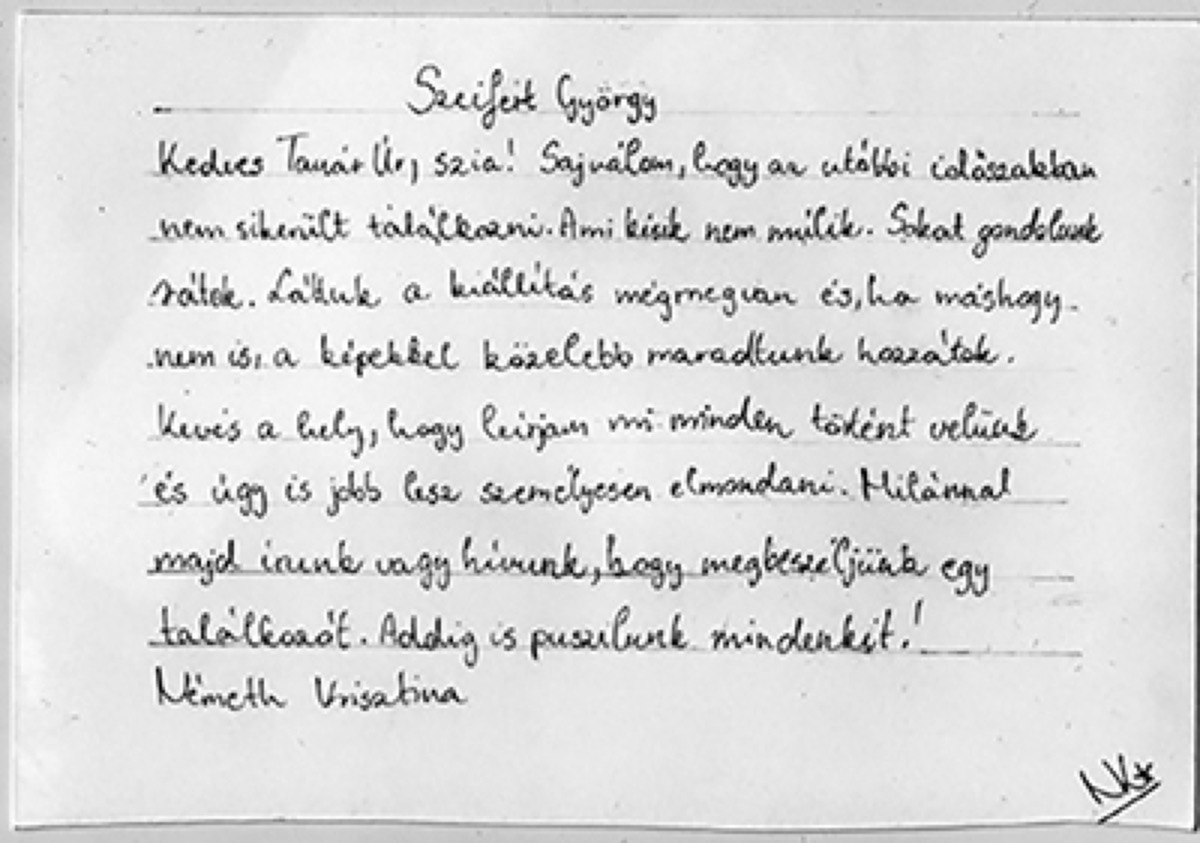 Szeifert György
Kedves Tanár Úr, szia! Sajnálom, hogy az utóbbi időszakban
nem sikerült találkozni. Ami késik nem múlik. Sokat gondolunk
rátok. Láttuk a kiállítás mégmegvan és, ha máshogy
nem is, a képekkel közelebb maradtunk hozzátok.
Kevés a hely, hogy leírjam mi minden történt velünk
és úgy is jobb lesz személyesen elmondani. Milánnal
majd írunk vagy hívunk, hogy megbeszéljünk egy
találkozót. Addig is puszilunk mindenkit!
Németh Krisztina
NK*